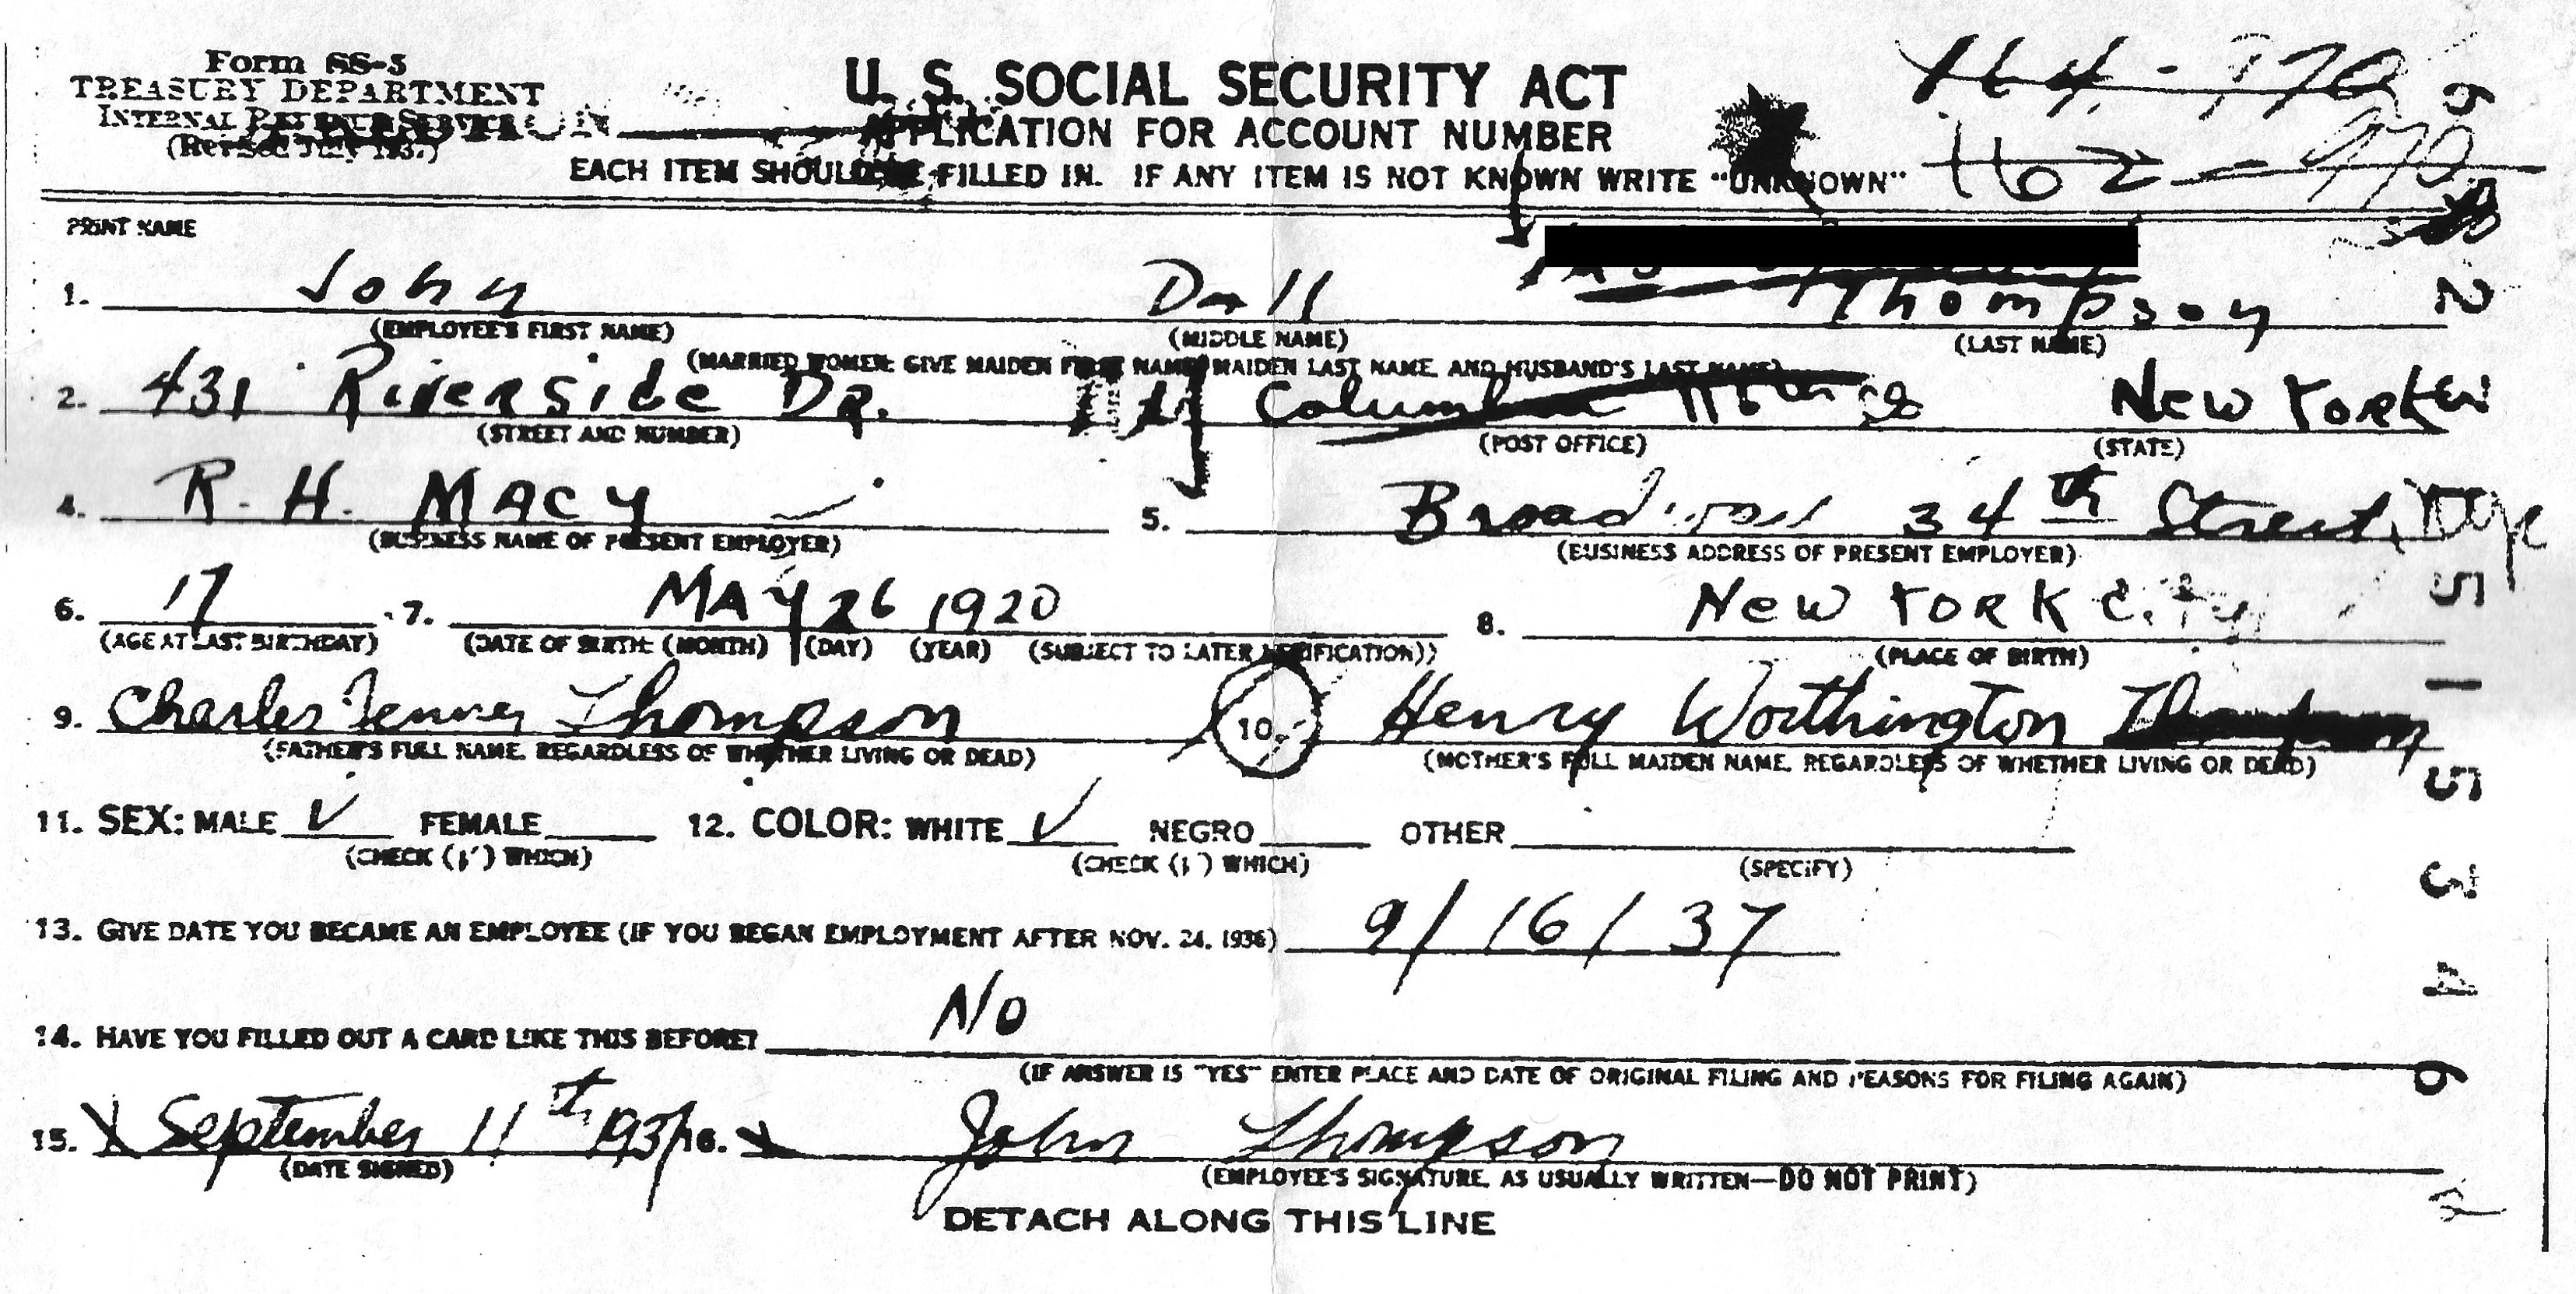 Form SS-5
TREASURY DEPARTMENT
INTERNAL REVENUE SERVICE
(Revised July 1937)
U. S. SOCIAL SECURITY ACT
APPLICATION FOR ACCOUNT NUMBER
EACH ITEM SHOULD BE FILLED IN. IF ANY ITEM IS NOT KNOWN WRITE "UNKNOWN"
PRINT NAME
1. John Dall Thompson
(EMPLOYEE'S FIRST NAME) (MIDDLE NAME) (LAST NAME)
(MARRIED WOMEN: GIVE MAIDEN FIRST NAME, MAIDEN LAST NAME, AND HUSBAND'S LAST NAME)
2. 431 Riverside Dr. Columbia New York
(STREET AND NUMBER) (POST OFFICE) (STATE)
4. R. H. MACY 5. Broadway 34th Street,
(BUSINESS NAME OF PRESENT EMPLOYER) (BUSINESS ADDRESS OF PRESENT EMPLOYER)
6. 17 7. MAY 26 1920 8. New York City
(AGE AT LAST BIRTHDAY) (DATE OF BIRTH: (MONTH) (DAY) (YEAR) (SUBJECT TO LATER VERIFICATION)) (PLACE OF BIRTH)
9. Charles Jenner Thompson 10. Henry Worthington Thompson
(FATHER'S FULL NAME, REGARDLESS OF WHETHER LIVING OR DEAD) (MOTHER'S FULL MAIDEN NAME, REGARDLESS OF WHETHER LIVING OR DEAD)
11. SEX: MALE ✓ FEMALE 12. COLOR: WHITE ✓ NEGRO OTHER
(CHECK (✓) WHICH) (CHECK (✓) WHICH) (SPECIFY)
13. GIVE DATE YOU BECAME AN EMPLOYEE (IF YOU BEGAN EMPLOYMENT AFTER NOV. 24, 1936) 9/16/37
14. HAVE YOU FILLED OUT A CARD LIKE THIS BEFORE? No
(IF ANSWER IS "YES" ENTER PLACE AND DATE OF ORIGINAL FILING AND REASONS FOR FILING AGAIN)
15. September 11th 1937 16. John Thompson
(DATE SIGNED) (EMPLOYEE'S SIGNATURE, AS USUALLY WRITTEN—DO NOT PRINT)
DETACH ALONG THIS LINE